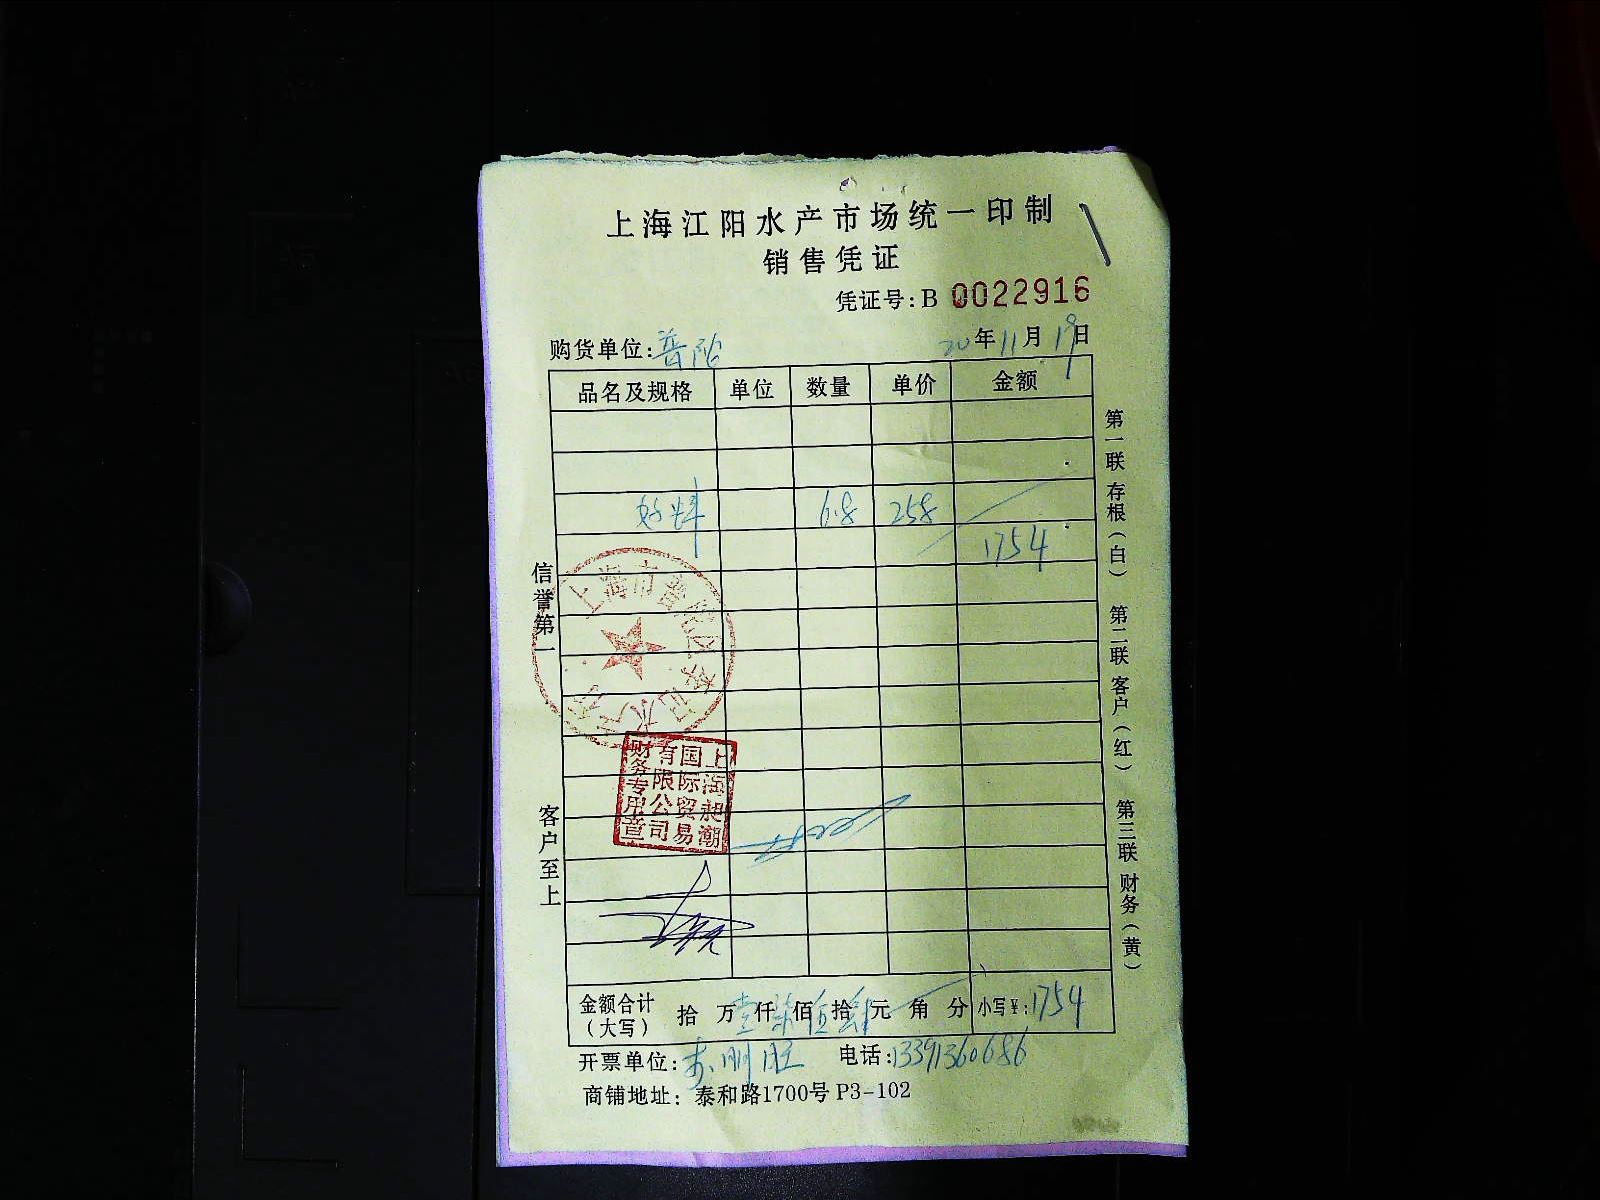 上海江阳水产市场统一印制
销售凭证
凭证号:B 0022916
购货单位:普陀 20年11月19日
品名及规格 单位 数量 单价 金额
6.8 258
1754
信誉第一
客户至上
第一联 存根(白) 第二联 客户(红) 第三联 财务(黄)
上海市普陀区李记水产行
上海昶潮
国际贸易
有限公司
财务专用章
金额合计(大写) 拾 万壹仟柒佰伍拾肆元 角 分 小写¥:1754
开票单位: 电话:13391360686
商铺地址: 泰和路1700号 P3-102